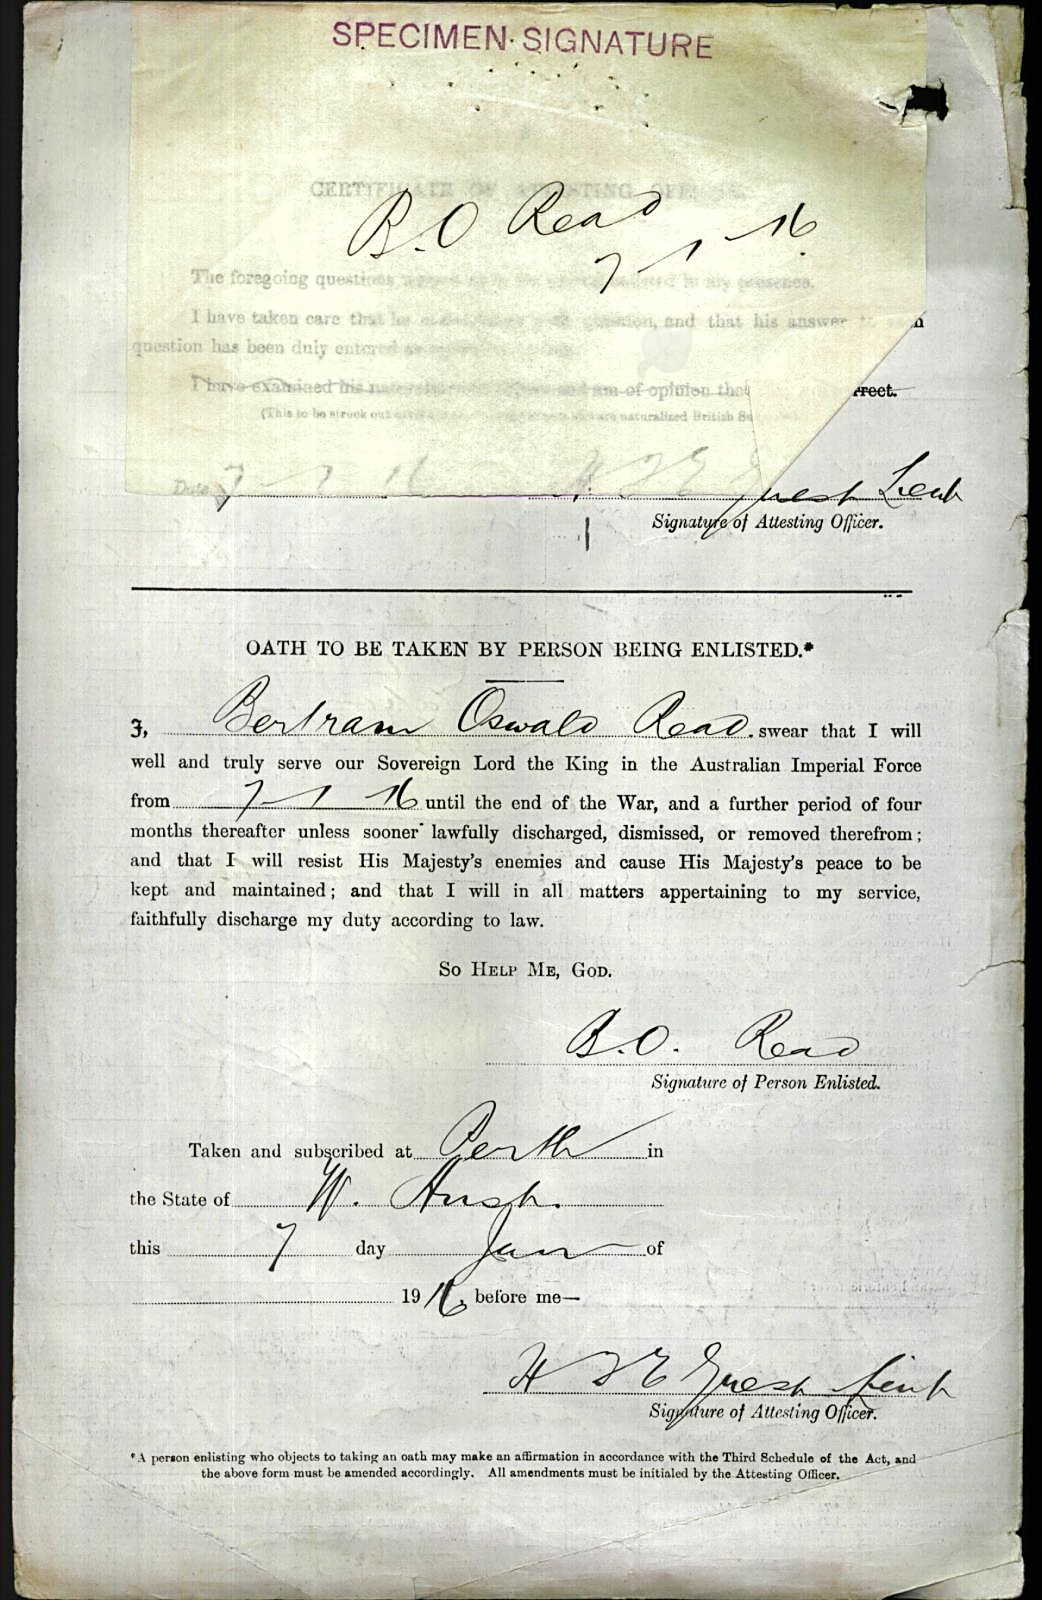 SPECIMEN SIGNATURE
CERTIFICATE OF ATTESTING OFFICER.
B.O Read
7-1-16
The foregoing questions in my presence.
I have taken care that he question, and that his answer to each
question has been duly entered as
I have examined his and am of opinion that correct.
(This to be struck out are naturalized British
Date 7 1 16 H F E Guest Lieut
Signature of Attesting Officer.
OATH TO BE TAKEN BY PERSON BEING ENLISTED.*
I, Bertram Oswald Read. swear that I will
well and truly serve our Sovereign Lord the King in the Australian Imperial Force
from 7-1-16 until the end of the War, and a further period of four
months thereafter unless sooner lawfully discharged, dismissed, or removed therefrom;
and that I will resist His Majesty's enemies and cause His Majesty's peace to be
kept and maintained; and that I will in all matters appertaining to my service,
faithfully discharge my duty according to law.
So Help Me, God.
B.O. Read
Signature of Person Enlisted.
Taken and subscribed at Perth in
the State of W. Aust.
this 7 day Jan of
1916 before me—
H F E Guest Lieut
Signature of Attesting Officer.
*A person enlisting who objects to taking an oath may make an affirmation in accordance with the Third Schedule of the Act, and
the above form must be amended accordingly. All amendments must be initialed by the Attesting Officer.